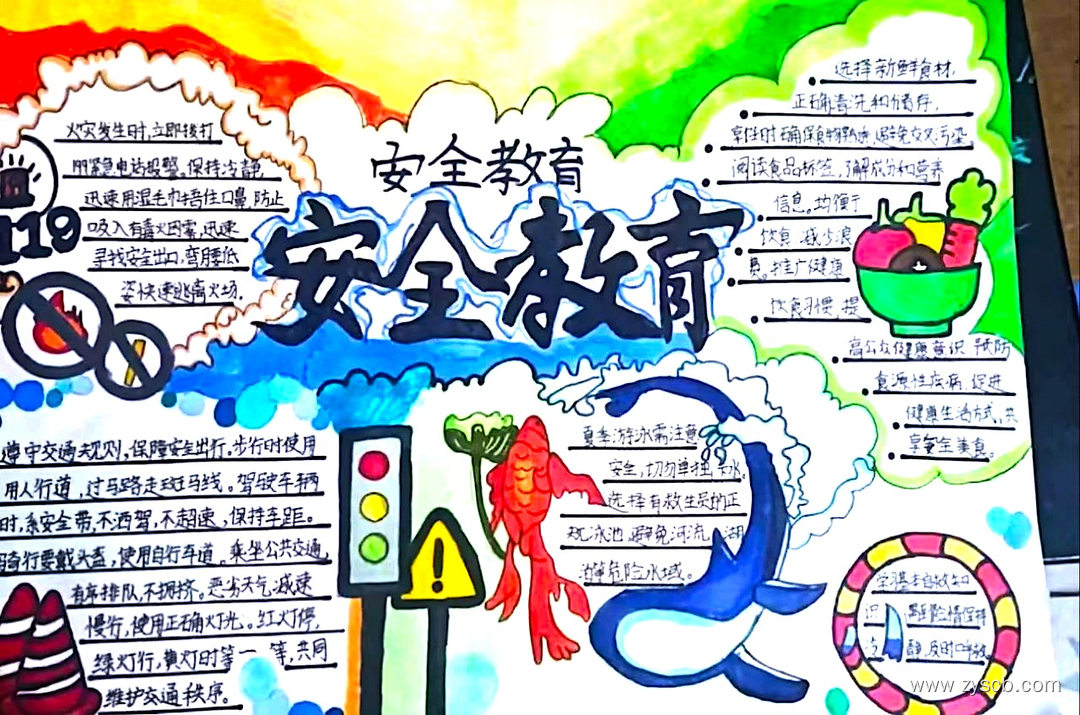 安全教育
安全教育
火灾发生时,立即拨打
119紧急电话报警,保持冷静,
迅速用湿毛巾捂住口鼻,防止
吸入有毒火因雾,迅速
寻找安全出口,弯腰低
姿快速逃离火场.
119
选择新鲜食材,
正确清洗和储存,
烹饪时确保食物熟透,避免交叉污染
阅读食品标签,了解成分和营养
信息。均衡
饮食,减少浪
费。推广健康
饮食习惯,提
高公众健康意识,预防
食源性疾病,促进
健康生活方式,共
享安全美食。
遵守交通规则,保障安全出行。步行时使用
用人行道,过马路走斑马线。驾驶车辆
时,系安全带,不酒驾,不超速,保持车距。
骑行要戴头盔,使用自行车道。乘坐公共交通,
有序排队,不拥挤。恶劣天气,减速
慢行,使用正确灯光。红灯停,
绿灯行,黄灯时等一等,共同
维护交通秩序。
夏季游泳需注意
安全,切勿单独
选择有救生员的正
规泳池,避免河流、湖
泊等危险水域。
学习基本自救知
识,遇到险情保持
冷静,及时呼救
www.zyscb.com